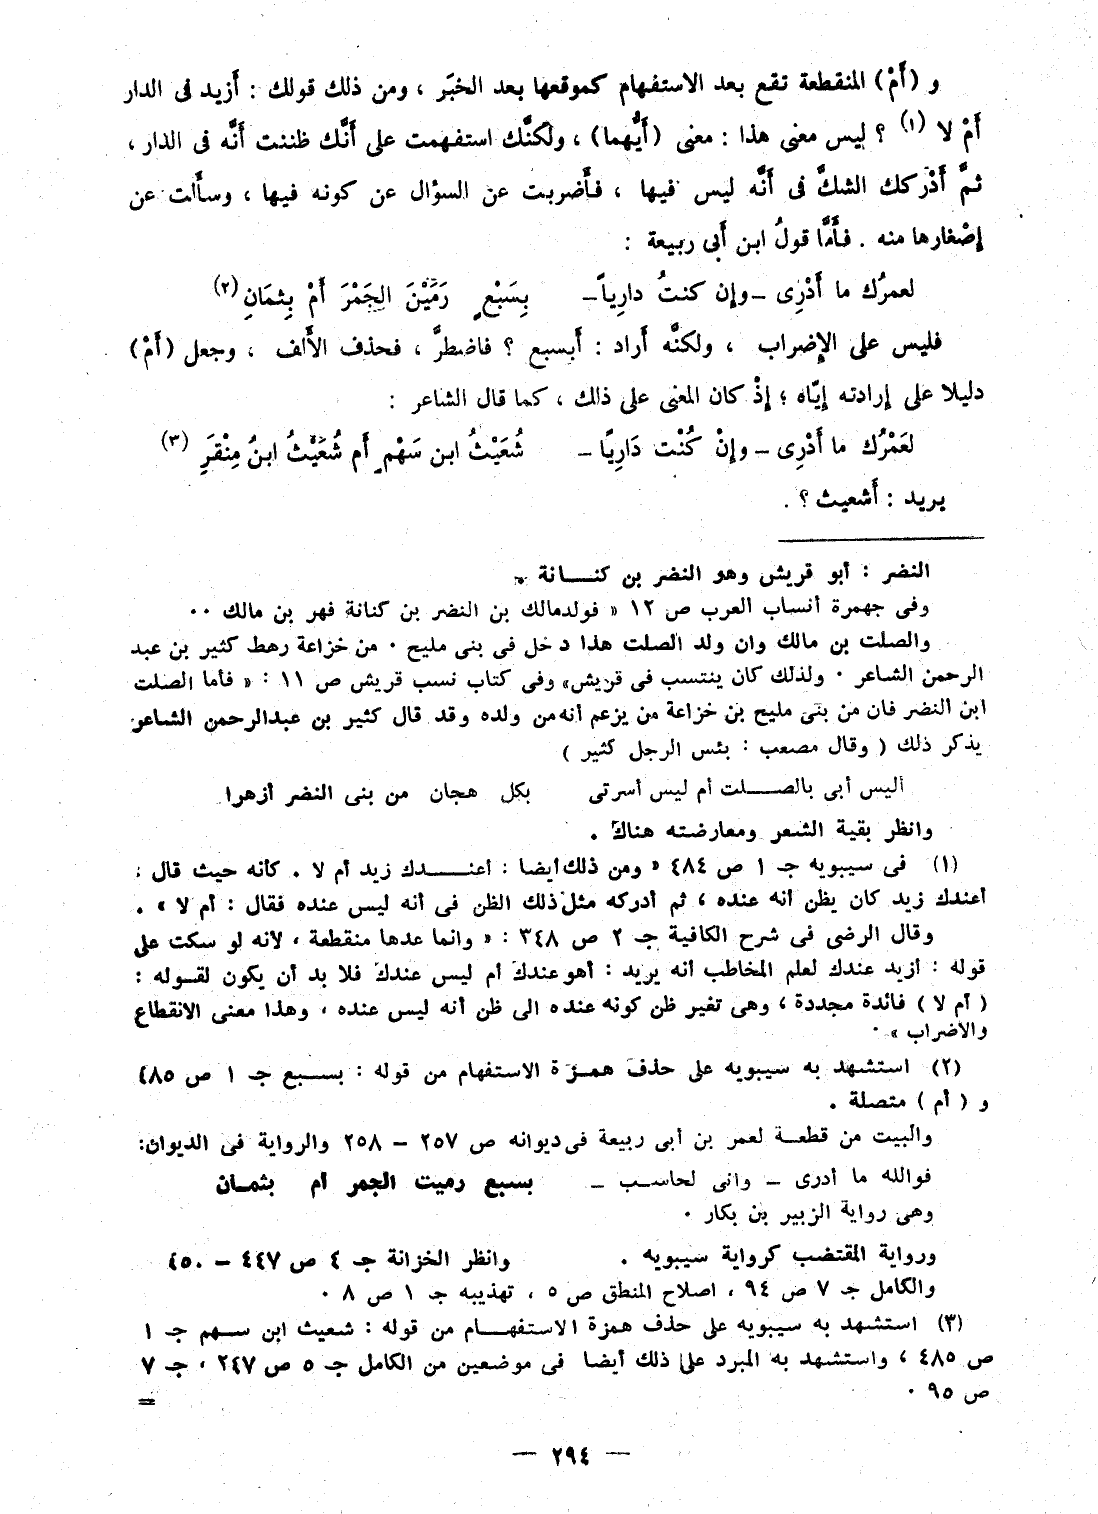 و (أَمْ) المنقطعة تقع بعد الاستفهام كموقعها بعد الخبَر ، ومن ذلك قولك : أَزيد فى الدار
أَمْ لا (١) ؟ ليس معنى هذا : معنى (أَيُّهما) ، ولكنَّك استفهمت على أَنَّك ظننت أَنَّه فى الدار ،
ثمَّ أَدْركك الشكُّ فى أَنَّه ليس فيها ، فأَضربت عن السؤال عن كونه فيها ، وسأَلت عن
إصْغارها منه . فأَمَّا قولُ ابن أَبى ربيعة :
لعمرُك ما أَدْرِى ــ وإن كنتُ دارِياً ــ بِسَبْعٍ رَمَيْنَ الجَمْرَ أَمْ بِثمَانِ (٢)
فليس على الإضراب ، ولكنَّه أَراد : أَبسبع ؟ فاضطرَّ ، فحذف الأَلف ، وجعل (أَمْ)
دليلا على إرادته إيّاه ؛ إذْ كان المعنى على ذلك ، كما قال الشاعر :
لعَمْرُك ما أَدْرِى ــ وإنْ كُنْت دَارِيًا ــ شُعَيْثُ ابن سَهْمٍ أَم شُعَيْثُ ابنُ مِنْقَرِ (٣)
يريد : أَشعيث ؟ .
النضر : أبو قريش وهو النضر بن كنـــانة .
وفى جهمرة أنساب العرب ص ١٢ « فولدمالك بن النضر بن كنانة فهر بن مالك ٠٠
والصلت بن مالك وان ولد الصلت هذا دخل فى بنى مليح ٠ من خزاعة رهط كثير بن عبد
الرحمن الشاعر ٠ ولذلك كان ينتسب فى قريش» وفى كتاب نسب قريش ص ١١ : « فأما الصلت
ابن النضر فان من بنى مليح بن خزاعة من يزعم أنه من ولده وقد قال كثير بن عبدالرحمن الشاعر
يذكر ذلك ( وقال مصعب : بئس الرجل كثير )
أليس أبى بالصــلت أم ليس أسرتى بكل هجان من بنى النضر أزهرا
وانظر بقية الشعر ومعارضته هناك .
(١) فى سيبويه جـ ١ ص ٤٨٤ « ومن ذلك أيضا : أعنـــدك زيد أم لا . كأنه حيث قال :
أعندك زيد كان يظن أنه عنده ، ثم أدركه مثل ذلك الظن فى أنه ليس عنده فقال : أم لا » .
وقال الرضى فى شرح الكافية جـ ٢ ص ٣٤٨ : « وانما عدها منقطعة ، لأنه لو سكت على
قوله : أزيد عندك لعلم المخاطب أنه يريد : أهو عندك أم ليس عندك فلا بد أن يكون لقــوله :
( أم لا ) فائدة مجددة ، وهى تغير ظن كونه عنده الى ظن أنه ليس عنده ، وهذا معنى الانقطاع
والاضراب » ٠
(٢) استشهد به سيبويه على حذف همــزة الاستفهام من قوله : بســبع جـ ١ ص ٤٨٥
و ( أم ) متصلة .
والبيت من قطعــة لعمر بن أبى ربيعة فى ديوانه ص ٢٥٧ – ٢٥٨ والرواية فى الديوان:
فوالله ما أدرى – وانى لحاسـب – بسبع رميت الجمر أم بثمــان
وهى رواية الزبير بن بكار ٠
ورواية المقتضب كرواية سيبويه . وانظر الخزانة جـ ٤ ص ٤٤٧ – ٤٥٠
والكامل جـ ٧ ص ٩٤ ، اصلاح المنطق ص ٥ ، تهذيبه جـ ١ ص ٨ ٠
(٣) استشهد به سيبويه على حذف همزة الاستفهــام من قوله : شعيث ابن ســهم جـ ١
ص ٤٨٥ ، واستشهد به المبرد على ذلك أيضا فى موضعين من الكامل جـ ٥ ص ٢٤٧ ، جـ ٧
ص ٩٥ ٠ =
— ٢٩٤ —